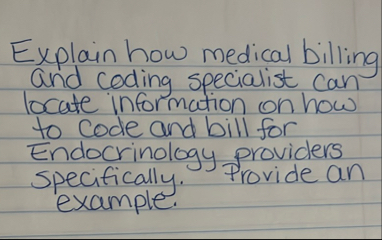 Explain how medical billing
and coding specialist can
locate information on how
to code and bill for
Endocrinology providers
specifically. Provide an
example.